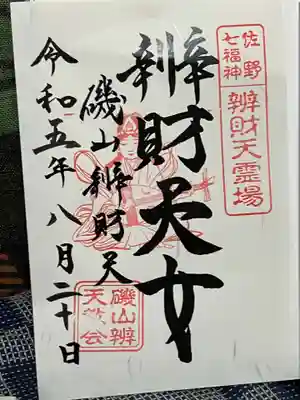 佐野
七福神
辨財天霊場
辨財天女
磯山辨財天
令和五年八月二十日
磯山辨
天 会